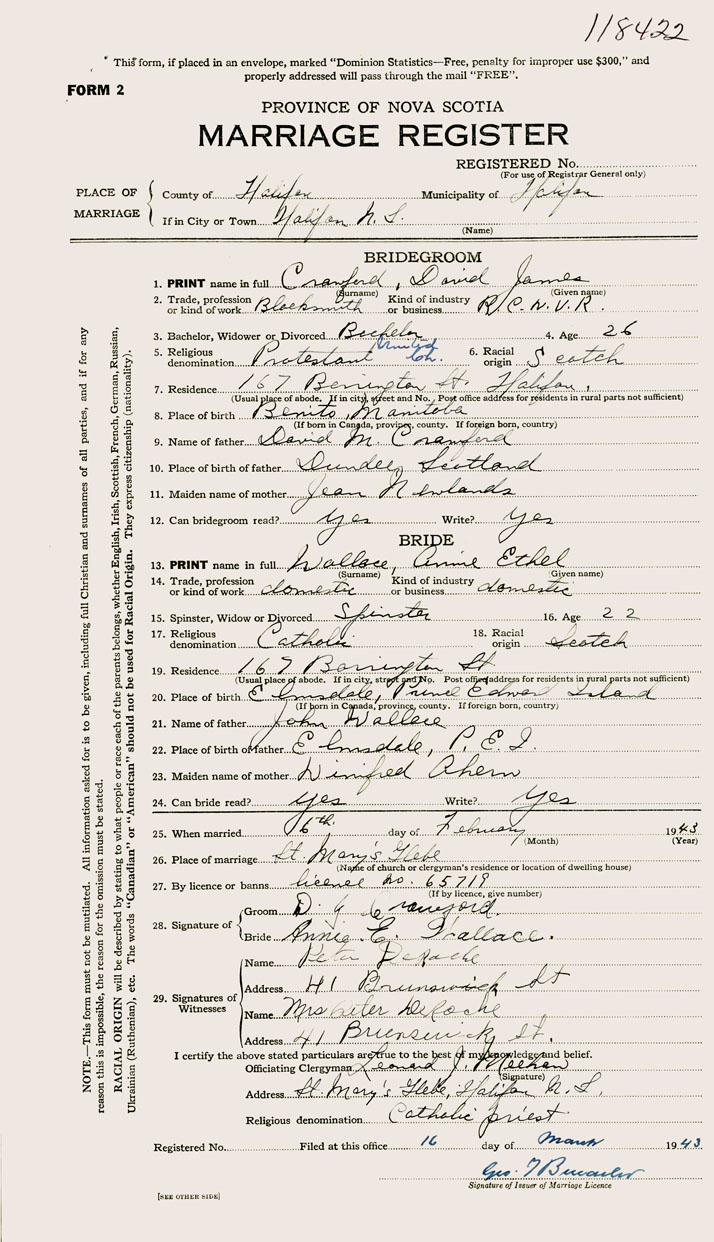 118422
This form, if placed in an envelope, marked "Dominion Statistics—Free, penalty for improper use $300," and
properly addressed will pass through the mail "FREE".
FORM 2
PROVINCE OF NOVA SCOTIA
MARRIAGE REGISTER
REGISTERED No.
(For use of Registrar General only)
PLACE OF MARRIAGE
County of Halifax Municipality of Halifax
If in City or Town Halifax N.S.
(Name)
BRIDEGROOM
1. PRINT name in full Crawford, David James
(Surname) (Given name)
2. Trade, profession or kind of work Blacksmith Kind of industry or business R.C.N.V.R.
3. Bachelor, Widower or Divorced Bachelor 4. Age 26
5. Religious denomination Protestant United Ch. 6. Racial origin Scotch
7. Residence 167 Barrington St. Halifax,
(Usual place of abode. If in city, street and No. Post office address for residents in rural parts not sufficient)
8. Place of birth Benito, Manitoba
(If born in Canada, province, county. If foreign born, country)
9. Name of father David M. Crawford
10. Place of birth of father Dundee, Scotland
11. Maiden name of mother Jean Newlands
12. Can bridegroom read? yes Write? yes
BRIDE
13. PRINT name in full Wallace, Annie Ethel
(Surname) (Given name)
14. Trade, profession or kind of work domestic Kind of industry or business domestic
15. Spinster, Widow or Divorced Spinster 16. Age 22
17. Religious denomination Catholic 18. Racial origin Scotch
19. Residence 167 Barrington St
(Usual place of abode. If in city, street and No. Post office address for residents in rural parts not sufficient)
20. Place of birth Elmsdale, Prince Edward Island
(If born in Canada, province, county. If foreign born, country)
21. Name of father John Wallace
22. Place of birth of father Elmsdale, P.E.I.
23. Maiden name of mother Winifred Ahern
24. Can bride read? yes Write? yes
25. When married 6th. day of February 1943
(Month) (Year)
26. Place of marriage St. Mary's Glebe
(Name of church or clergyman's residence or location of dwelling house)
27. By licence or banns licence no. 65719
(If by licence, give number)
28. Signature of
Groom D. J. Crawford.
Bride Annie E. Wallace.
29. Signatures of Witnesses
Name Peter DeRoche
Address 41 Brunswick St
Name Mrs Peter DeRoche
Address 41 Brunswick St.
I certify the above stated particulars are true to the best of my knowledge and belief.
Officiating Clergyman Leonard J. Meehan
(Signature)
Address St. Mary's Glebe, Halifax N.S.
Religious denomination Catholic priest
Registered No. Filed at this office 16 day of March 1943
Geo.
Signature of Issuer of Marriage Licence
[SEE OTHER SIDE]
NOTE.—This form must not be mutilated. All information asked for is to be given, including full Christian and surnames of all parties, and if for any
reason this is impossible, the reason for the omission must be stated.
RACIAL ORIGIN will be described by stating to what people or race each of the parents belongs, whether English, Irish, Scottish, French, German, Russian,
Ukrainian (Ruthenian), etc. The words "Canadian" or "American" should not be used for Racial Origin. They express citizenship (nationality).